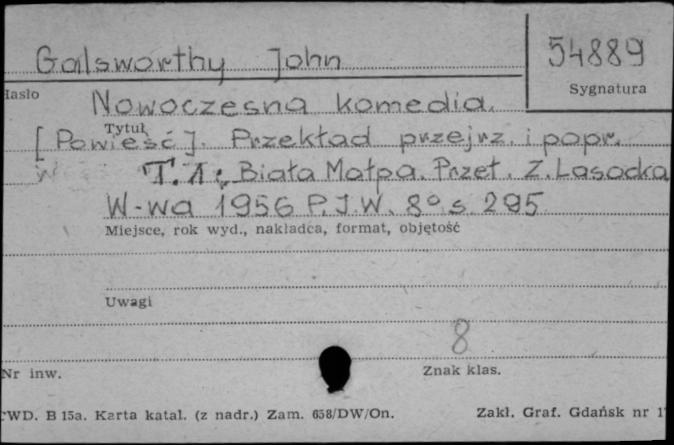 Galsworthy John
54889
Hasło
Sygnatura
Nowoczesna komedia.
Tytuł
[Powieść]. Przekład przejrz. i popr.
T. 1: Biała Małpa. Przeł. Z. Lasocka
W-wa 1956 P.I.W. 8° s. 295
Miejsce, rok wyd., nakładca, format, objętość
Uwagi
8
Nr inw.
Znak klas.
WD. B 15a. Karta katal. (z nadr.) Zam. 658/DW/On.
Zakł. Graf. Gdańsk nr 1